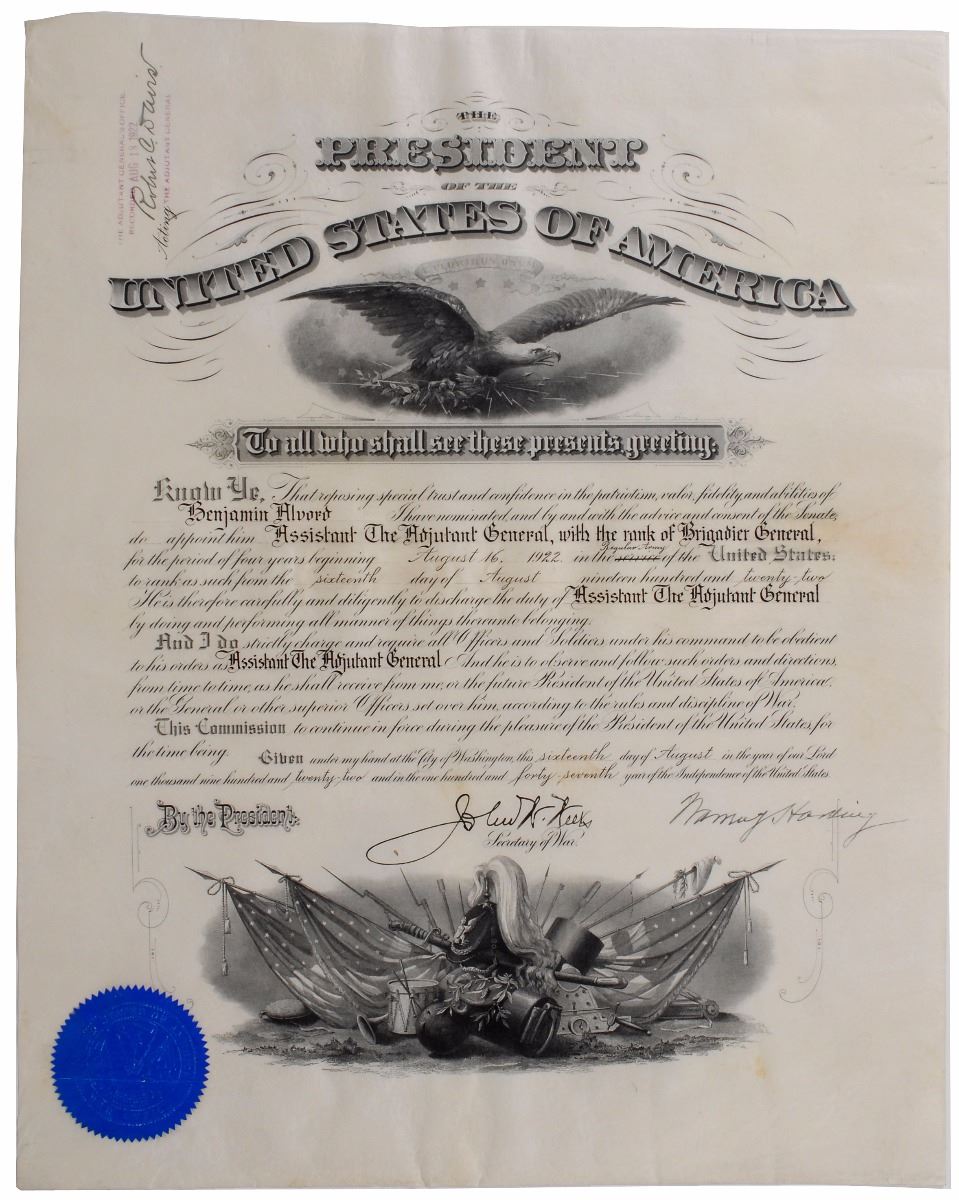 THE ADJUTANT GENERAL'S OFFICE
RECORDED AUG 18 1922
Robert C Davis
Acting THE ADJUTANT GENERAL
THE
PRESIDENT
OF THE
UNITED STATES OF AMERICA
E PLURIBUS UNUM
To all who shall see these presents, greeting:
Know Ye, That reposing special trust and confidence in the patriotism, valor, fidelity and abilities of
Benjamin Alvord I have nominated, and by and with the advice and consent of the Senate,
do appoint him Assistant The Adjutant General, with the rank of Brigadier General,
for the period of four years beginning August 16, 1922 in the service Regular Army of the United States:
to rank as such from the sixteenth day of August nineteen hundred and twenty-two
He is therefore carefully and diligently to discharge the duty of Assistant The Adjutant General
by doing and performing all manner of things thereunto belonging.
And I do strictly charge and require all Officers and Soldiers under his command to be obedient
to his orders as Assistant The Adjutant General And he is to observe and follow such orders and directions,
from time to time, as he shall receive from me, or the future President of the United States of America,
or the General or other superior Officers set over him, according to the rules and discipline of War.
This Commission to continue in force during the pleasure of the President of the United States, for
the time being. Given under my hand at the City of Washington, this sixteenth day of August in the year of our Lord
one thousand nine hundred and twenty-two and in the one hundred and forty-seventh year of the Independence of the United States.
By the President:
John W. Weeks
Warren G Harding
Secretary of War.